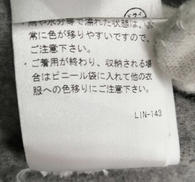 や水分等で濡れた状態は、
常に色が移りやすいですので、
ご注意下さい。
・ご着用が終わり、収納される場
合はビニール袋に入れて他の衣
服への色移りにご注意下さい。
LIN-143